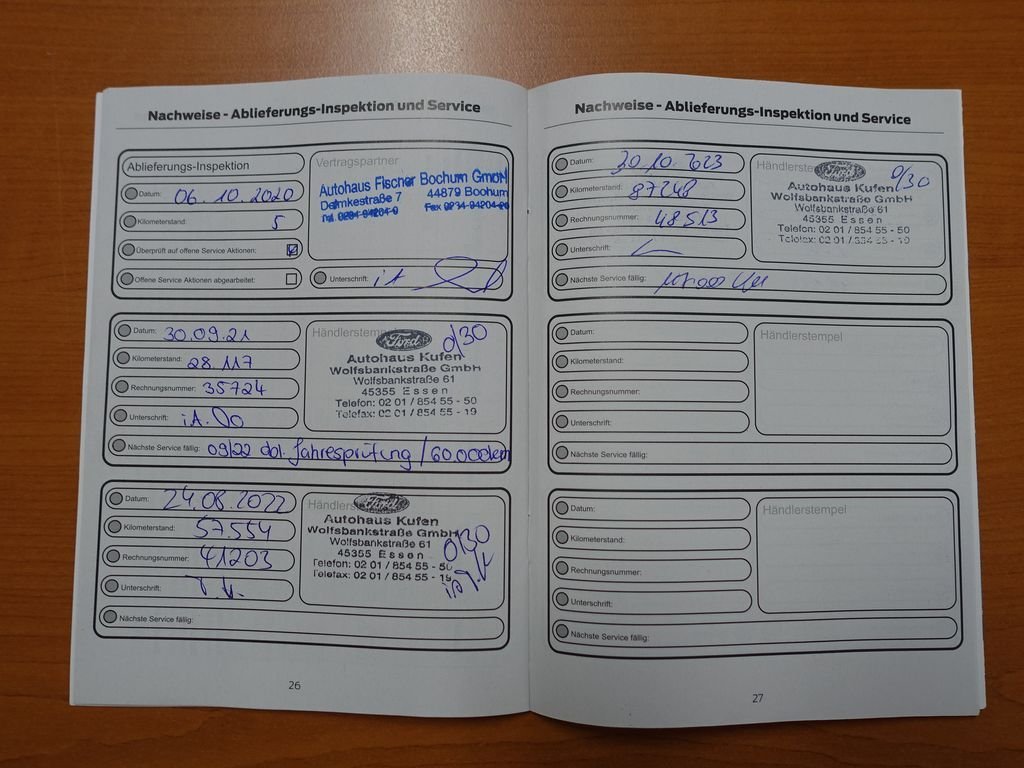 Nachweise - Ablieferungs-Inspektion und Service
Ablieferungs-Inspektion
Datum: 06.10.2020
Kilometerstand: 5
Überprüft auf offene Service Aktionen:
Offene Service Aktionen abgearbeitet:
Vertragspartner
Autohaus Fischer Bochum GmbH
Dahnkestraße 7 44879 Bochum
Unterschrift:
Datum: 30.09.21
Kilometerstand: 28.117
Rechnungsnummer: 35724
Unterschrift: i.A. Do
Nächste Service fällig: 09/22 dbl. Jahresprüfung / 60.000km
Händlerstem
Ford
0/30
Autohaus Kufen
Wolfsbankstraße GmbH
Wolfsbankstraße 61
45355 Essen
Telefon: 02 01 / 854 55 - 50
Telefax: 02 01 / 854 55 - 19
Datum: 24.08.2022
Kilometerstand: 57.554
Rechnungsnummer: 41203
Unterschrift:
Nächste Service fällig:
Händlers
Ford
Autohaus Kufen
Wolfsbankstraße GmbH
Wolfsbankstraße 61
45355 Essen
Telefon: 02 01 / 854 55 - 50
Telefax: 02 01 / 854 55 - 19
0/30
26
Nachweise - Ablieferungs-Inspektion und Service
Datum: 30.10.2023
Kilometerstand: 87248
Rechnungsnummer: 48513
Unterschrift:
Nächste Service fällig:
Händlerste
0/30
Autohaus Kufen
Wolfsbankstraße GmbH
Wolfsbankstraße 61
45355 Essen
Telefon: 02 01 / 854 55 - 50
Telefax: 02 01 / 854 55 - 19
Datum:
Kilometerstand:
Rechnungsnummer:
Unterschrift:
Nächste Service fällig:
Händlerstempel
Datum:
Kilometerstand:
Rechnungsnummer:
Unterschrift:
Nächste Service fällig:
Händlerstempel
27